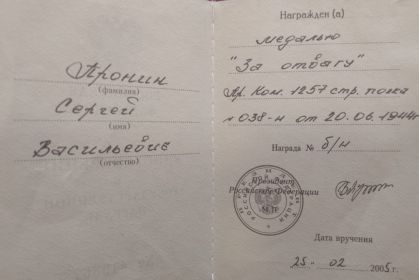 Пронин
(фамилия)
Сергей
(имя)
Васильевич
(отчество)
Награжден (а)
медалью
"За отвагу"
Пр. Ком. 1257 стр. полка
№ 038-н от 20.06.1944г
Награда № б/н
Президент
Российской Федерации
Дата вручения
25 - 02 2005 г.